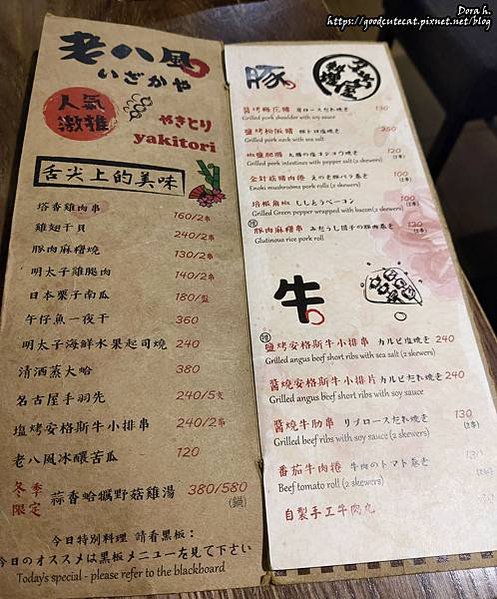 Dora h.
https://goodcutecat.pixnet.net/blog
老八風
いざかや
人氣
激推
やきとり
yakitori
舌尖上的美味
塔香雞肉串 160/2串
雞翅干貝 240/2串
豚肉麻糬燒 130/2串
明太子雞腿肉 140/2串
日本栗子南瓜 180/盤
午仔魚一夜干 360
明太子海鮮水果起司燒 240
清酒蒸大蛤 380
名古屋手羽先 240/5支
塩烤安格斯牛小排串 240/2串
老八風冰釀苦瓜 120
冬季限定 蒜香蛤蠣野菇雞湯 380/580 (鍋)
今日特別料理 請看黑板:
今日のオススメは黒板メニューを見て下さい
Today's special - please refer to the blackboard
豚
料理屋
醬烤梅花豬 肩ロースだれ焼き 130
Grilled pork shoulder with soy sauce
鹽烤松阪豬 豚トロ塩焼き 250
Grilled pork neck with sea salt
椒鹽肥腸 大腸の塩コショウ焼き 120 (2串)
Grilled pork intestine with pepper salt (2 skewers)
金針菇豬肉捲 えのき豚バラ巻き 100 (2串)
Enoki mushrooms pork rolls (2 skewers)
培根角椒 ししとうベーコン 100 (2串)
Grilled Green pepper wrapped with bacon(2 skewers)
豚肉麻糬串 みたらし団子の豚肉巻き 130 (2串)
Glutinous rice pork roll
牛
鹽烤安格斯牛小排串 カルビ塩焼き 240
Grilled angus beef short ribs with sea salt (2 skewers)
醬燒安格斯牛小排片 カルビだれ焼き 240
Grilled angus beef short ribs with soy sauce
醬燒牛肋串 リブロースだれ焼き 130 (2串)
Grilled beef ribs with soy sauce (2 skewers)
番茄牛肉捲 牛肉のトマト巻き 130
Beef tomato roll (2 skewers)
自製手工牛肉丸